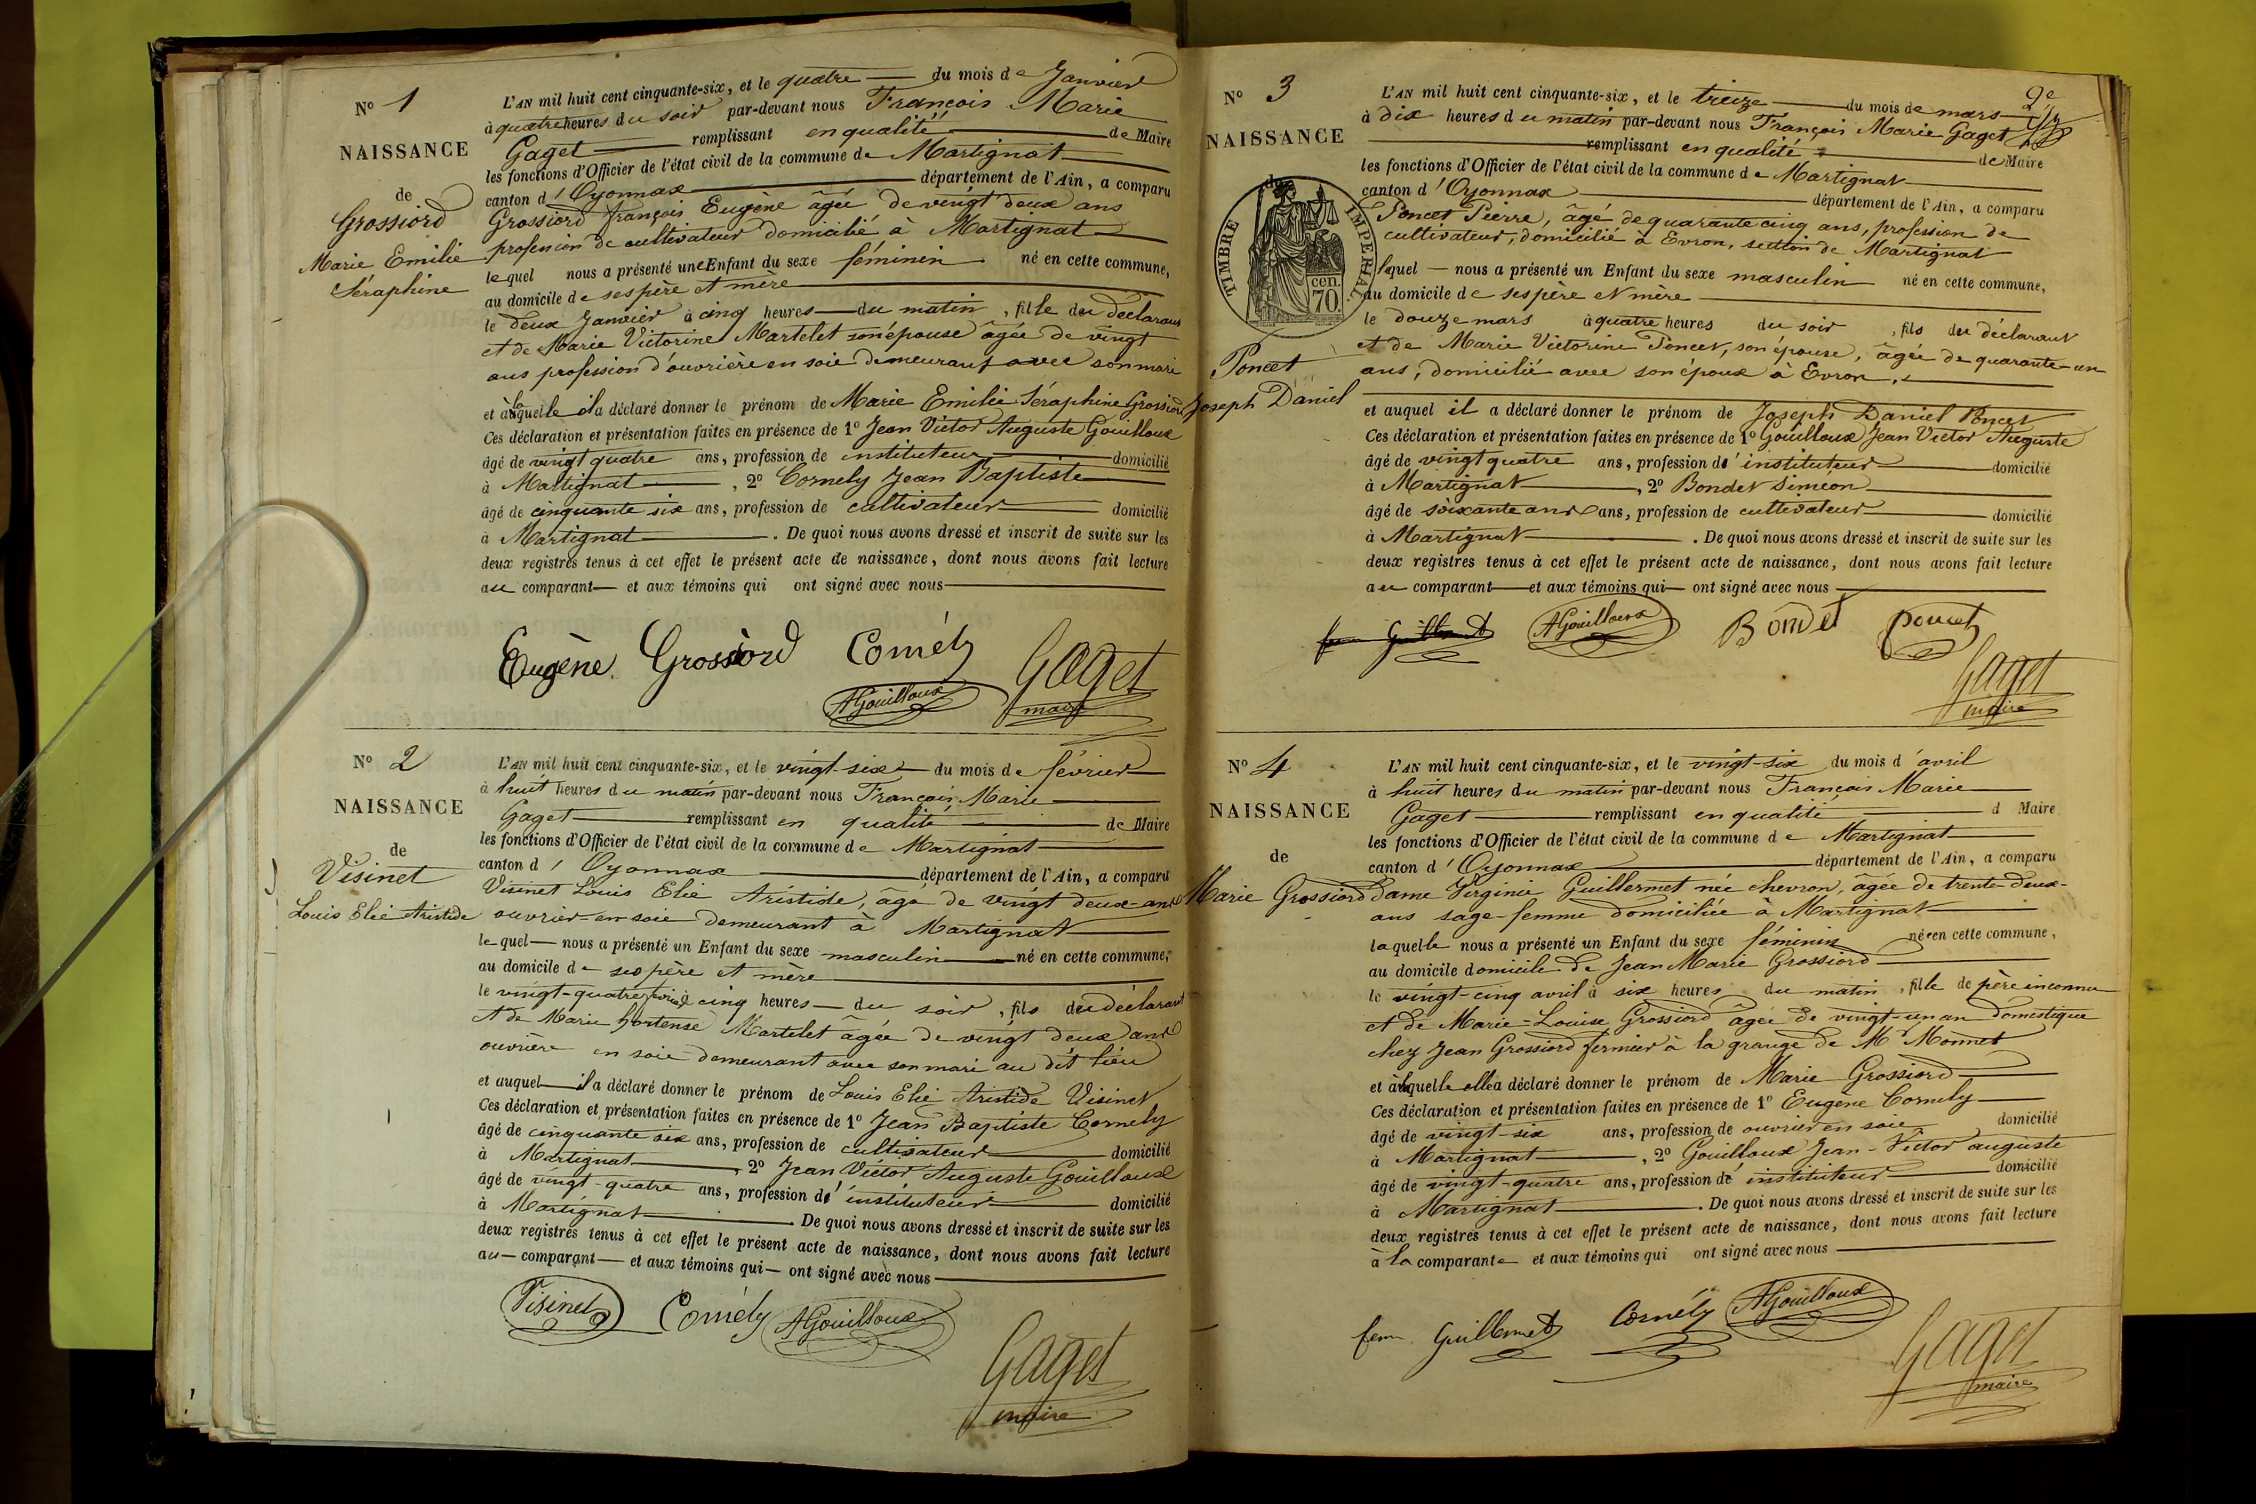 N° 1
NAISSANCE
de
Grossiord
Marie Emilie
Séraphine
L'AN mil huit cent cinquante-six, et le quatre du mois de Janvier
à quatre heures du soir par-devant nous François Marie
Gaget remplissant en qualité de Maire
les fonctions d'Officier de l'état civil de la commune de Martignat
canton d'Oyonnax département de l'Ain, a comparu
Grossiord françois Eugène âgée de vingt deux ans
profession de cultivateur domicilié à Martignat
lequel nous a présenté une Enfant du sexe féminin né en cette commune,
au domicile de ses père et mère
le deux Janvier à cinq heures du matin, fille du déclarant
et de Marie Victorine Martelet son épouse âgée de vingt
ans profession d'ouvrière en soie demeurant avec son mari
et à laquelle il a déclaré donner le prénom de Marie Emilie Séraphine Grossiord
Ces déclaration et présentation faites en présence de 1° Jean Victor Auguste Gouilloux
âgé de vingt quatre ans, profession de instituteur domicilié
à Martignat, 2° Cornely Jean Baptiste
âgé de cinquante six ans, profession de cultivateur domicilié
à Martignat. De quoi nous avons dressé et inscrit de suite sur les
deux registres tenus à cet effet le présent acte de naissance, dont nous avons fait lecture
au comparant et aux témoins qui ont signé avec nous
Eugène Grossiord Cornély Gaget
AGouilloux maire
N° 2
NAISSANCE
de
Visinet
Louis Elie Aristide
L'AN mil huit cent cinquante-six, et le vingt-six du mois de février
à huit heures du matin par-devant nous François Marie
Gaget remplissant en qualité de Maire
les fonctions d'Officier de l'état civil de la commune de Martignat
canton d'Oyonnax département de l'Ain, a comparu
Visinet Louis Elie Aristide, âgé de vingt deux ans
ouvrier en soie demeurant à Martignat
lequel nous a présenté un Enfant du sexe masculin né en cette commune,
au domicile de ses père et mère
le vingt-quatre février cinq heures du soir, fils du déclarant
et de Marie hortense Martelet âgée de vingt deux ans
ouvrière en soie demeurant avec son mari au dit lieu
et auquel il a déclaré donner le prénom de Louis Elie Aristide Visinet
Ces déclaration et présentation faites en présence de 1° Jean Baptiste Cornely
âgé de cinquante six ans, profession de cultivateur domicilié
à Martignat, 2° Jean Victor Auguste Gouilloux
âgé de vingt-quatre ans, profession d'instituteur domicilié
à Martignat. De quoi nous avons dressé et inscrit de suite sur les
deux registres tenus à cet effet le présent acte de naissance, dont nous avons fait lecture
au comparant et aux témoins qui ont signé avec nous
Visinet Cornély AGouilloux
Gaget
maire
2e
N° 3
NAISSANCE
de
TIMBRE IMPERIAL
70 cen.
Poncet
Joseph Daniel
L'AN mil huit cent cinquante-six, et le treize du mois de mars
à dix heures du matin par-devant nous François Marie Gaget
remplissant en qualité de Maire
les fonctions d'Officier de l'état civil de la commune de Martignat
canton d'Oyonnax département de l'Ain, a comparu
Poncet Pierre, âgé de quarante cinq ans, profession de
cultivateur, domicilié à Evron, section de Martignat
lequel nous a présenté un Enfant du sexe masculin né en cette commune,
au domicile de ses père et mère
le douze mars à quatre heures du soir, fils du déclarant
et de Marie Victorine Poncet, son épouse, âgée de quarante-un
ans, domicilié avec son époux à Evron,
et auquel il a déclaré donner le prénom de Joseph Daniel Poncet
Ces déclaration et présentation faites en présence de 1° Gouilloux Jean Victor Auguste
âgé de vingt quatre ans, profession d'instituteur domicilié
à Martignat, 2° Bondet Siméon
âgé de soixante ans, profession de cultivateur domicilié
à Martignat. De quoi nous avons dressé et inscrit de suite sur les
deux registres tenus à cet effet le présent acte de naissance, dont nous avons fait lecture
au comparant et aux témoins qui ont signé avec nous
AGouilloux Bondet poncet
Gaget
maire
N° 4
NAISSANCE
de
Marie Grossiord
L'AN mil huit cent cinquante-six, et le vingt-six du mois d'avril
à huit heures du matin par-devant nous François Marie
Gaget remplissant en qualité d Maire
les fonctions d'Officier de l'état civil de la commune de Martignat
canton d'Oyonnax département de l'Ain, a comparu
Dame Virginie Guillermet née chevron, âgée de trente-deux-
ans sage-femme domiciliée à Martignat
laquelle nous a présenté un Enfant du sexe féminin née en cette commune,
au domicile domicile de Jean Marie Grossiord
le vingt-cinq avril à six heures du matin, fille de père inconnu
et de Marie-Louise Grossiord âgée de vingt-un an domestique
chez Jean Grossiord fermier à la grange de Mr Monnet
et à laquelle elle a déclaré donner le prénom de Marie Grossiord
Ces déclaration et présentation faites en présence de 1° Eugène Cornely
âgé de vingt-six ans, profession de ouvrier en soie domicilié
à Martignat, 2° Gouilloux Jean-Victor auguste
âgé de vingt-quatre ans, profession de instituteur domicilié
à Martignat. De quoi nous avons dressé et inscrit de suite sur les
deux registres tenus à cet effet le présent acte de naissance, dont nous avons fait lecture
à la comparante et aux témoins qui ont signé avec nous
fem Guillermet Cornély AGouilloux
Gaget
maire